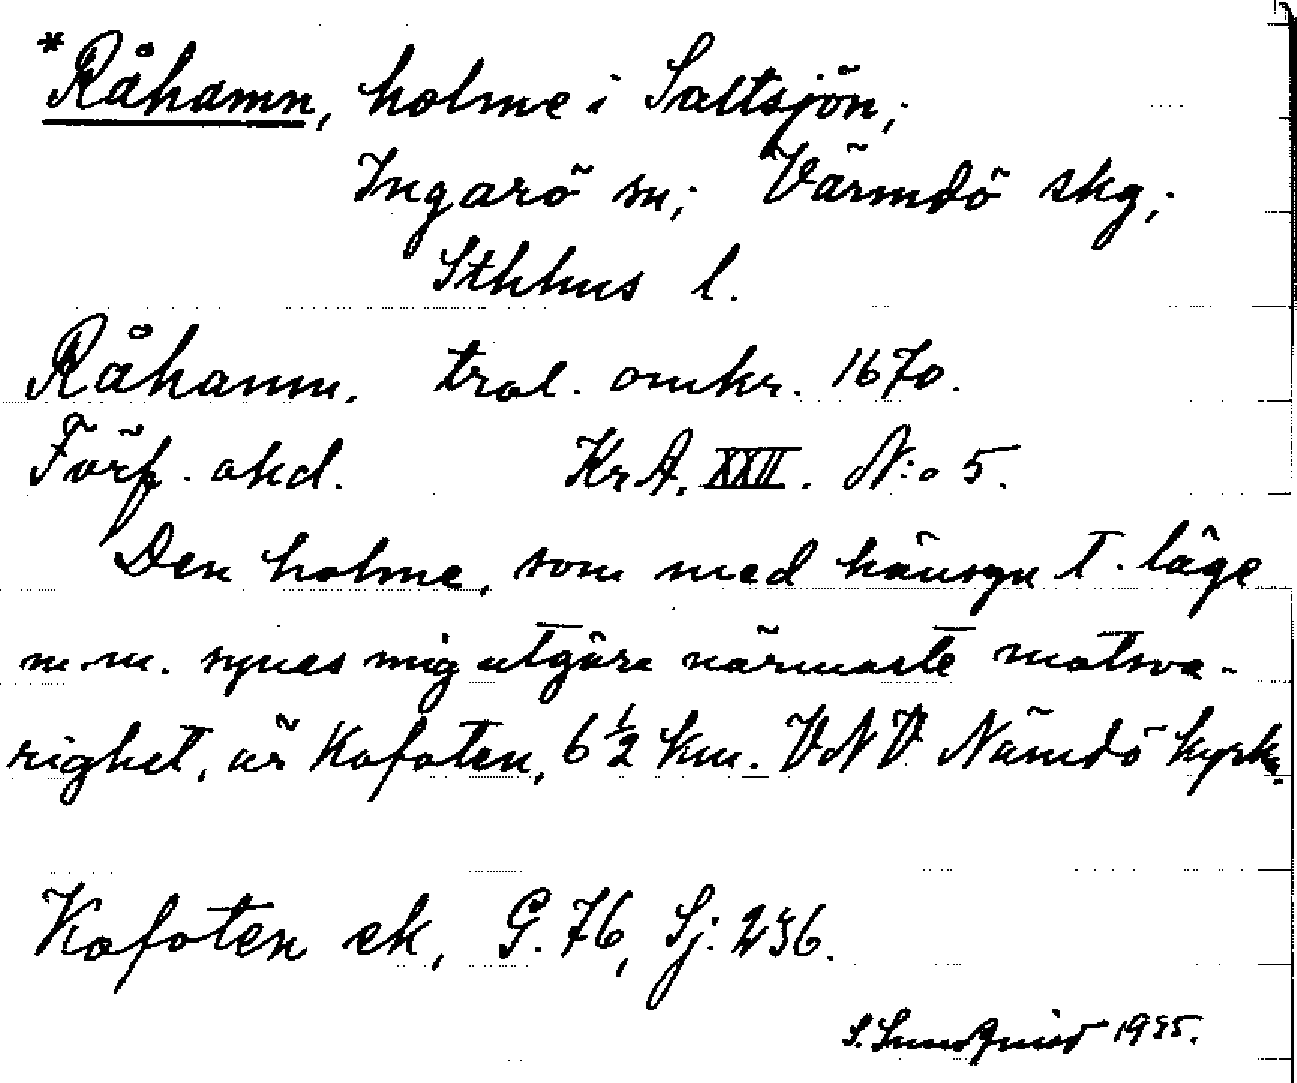 *Råhamn, holme i Saltsjön;
Ingarö sn; Värmdö skg;
Sthlms l.
Råhamn. trol. omkr. 1670.
Förf. okd. KrA. XXII. N:o 5.
Den holme, som med hänsyn t. läge
m.m. synes mig utgöra närmaste motsva-
righet, är Kofoten, 6 1/2 km. VNV Nämdö kyrka.
Kofoten ek, G. 76, Sj: 236.
1935.